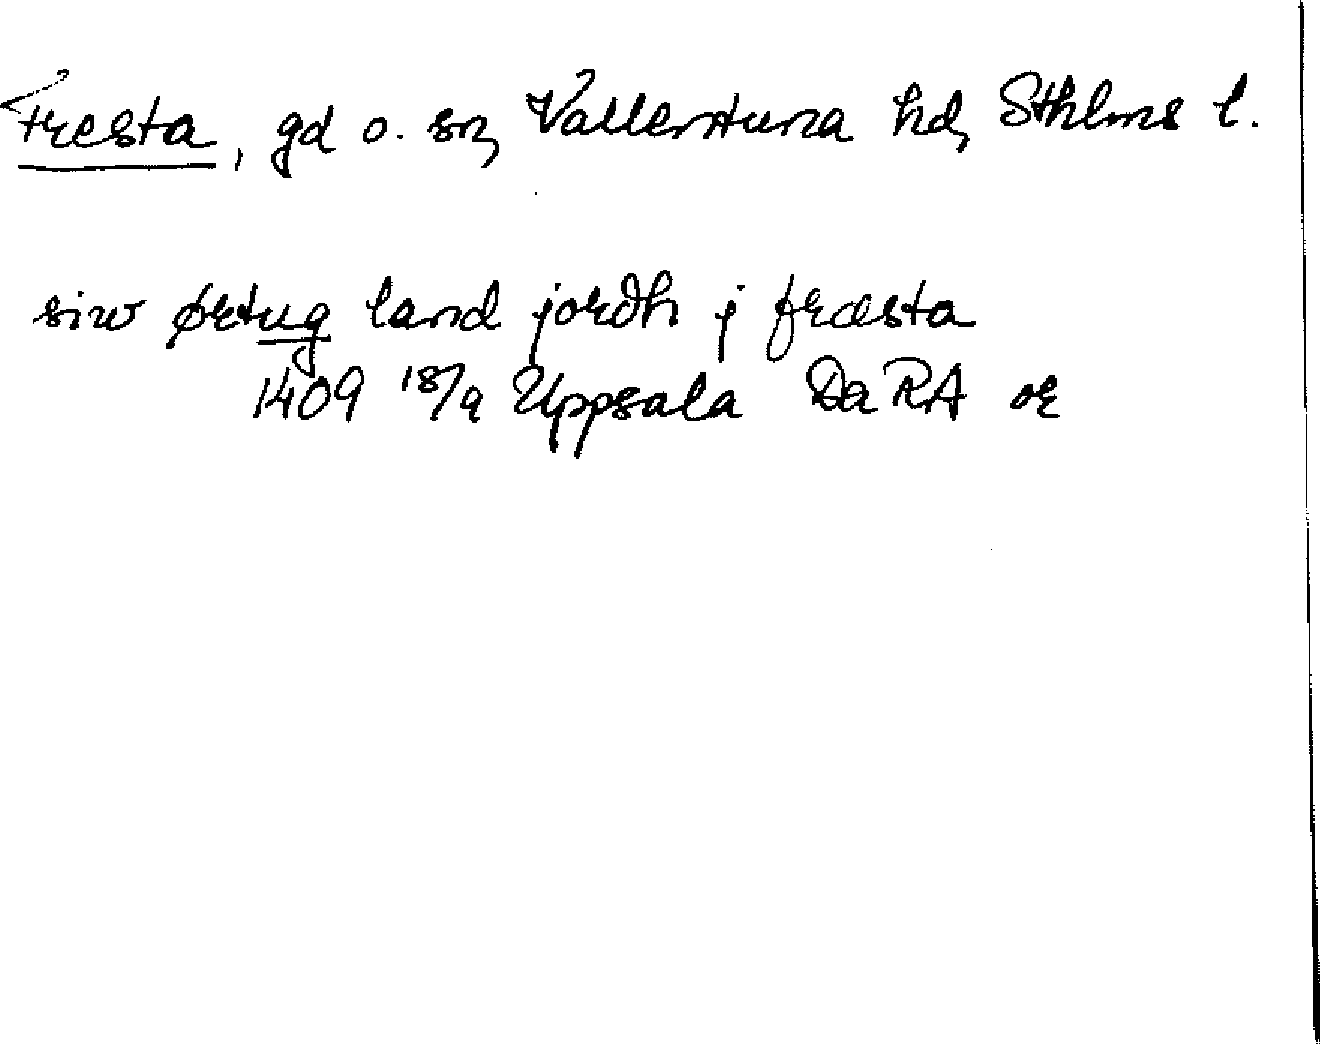 Fresta, gd o. sn, Vallentuna hd, Sthlms l.
siw ørtug land jordh j fræsta
1409 18/9 Uppsala Da RA or